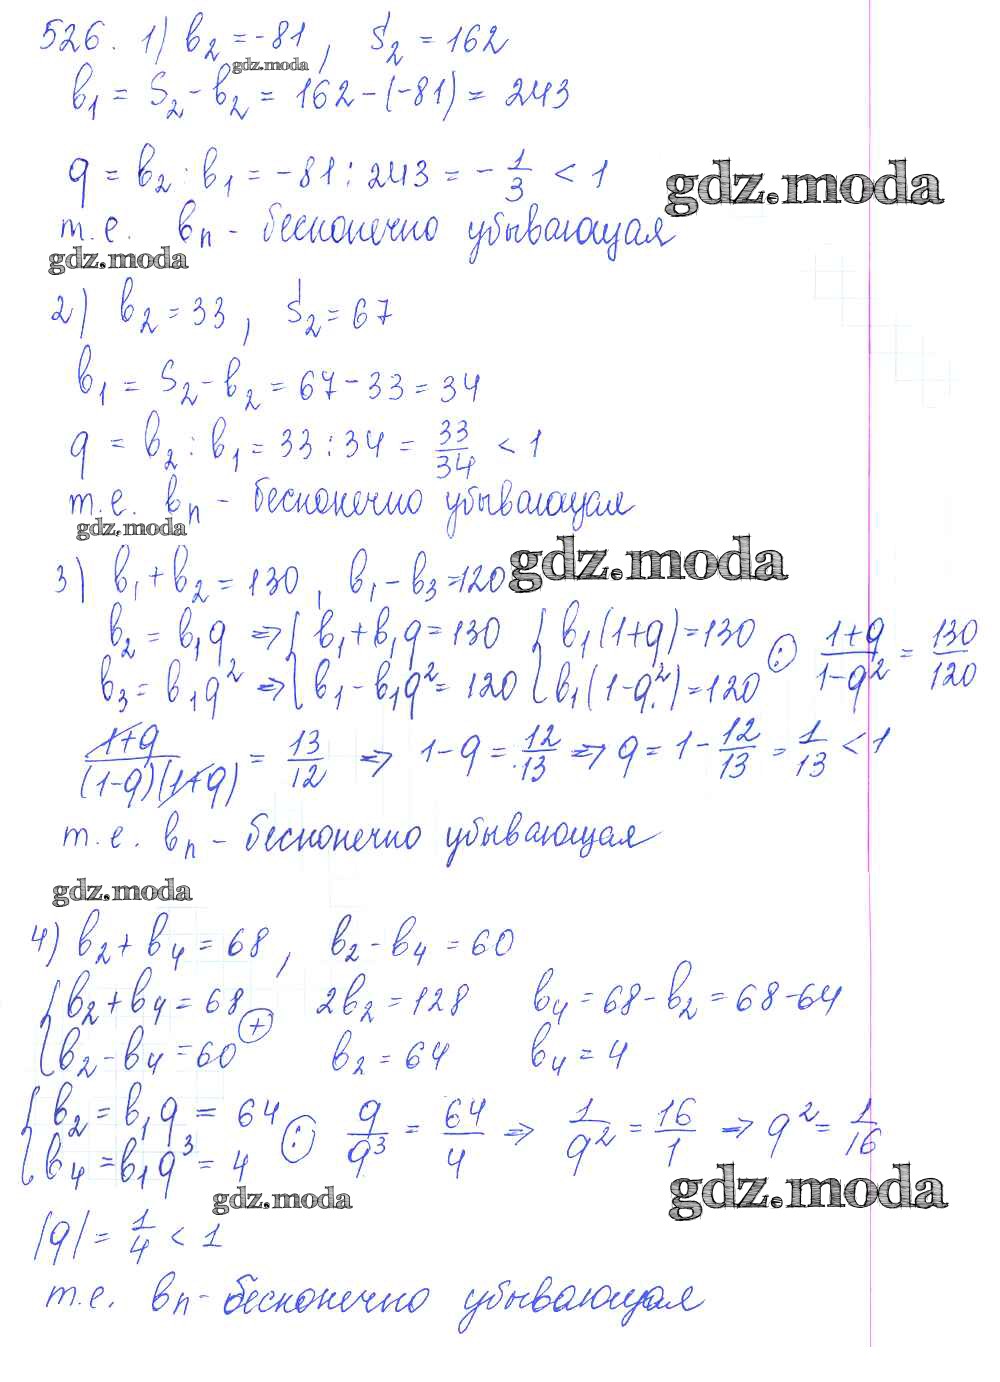 526. 1) b₂ = -81, S₂ = 162
gdz.moda
b₁ = S₂ - b₂ = 162 - (-81) = 243
q = b₂ : b₁ = -81 : 243 = -1/3 < 1
gdz.moda
т.е. bₙ - бесконечно убывающая
gdz.moda
2) b₂ = 33, S₂ = 67
b₁ = S₂ - b₂ = 67 - 33 = 34
q = b₂ : b₁ = 33 : 34 = 33/34 < 1
т.е. bₙ - бесконечно убывающая
gdz.moda
3) b₁ + b₂ = 130, b₁ - b₃ = 120
gdz.moda
b₂ = b₁q ⇒ { b₁ + b₁q = 130 { b₁(1+q) = 130 (:) (1+q)/(1-q²) = 130/120
b₃ = b₁q² ⇒ { b₁ - b₁q² = 120 { b₁(1-q²) = 120
(1+q)/((1-q)(1+q)) = 13/12 ⇒ 1-q = 12/13 ⇒ q = 1 - 12/13 = 1/13 < 1
т.е. bₙ - бесконечно убывающая
gdz.moda
4) b₂ + b₄ = 68, b₂ - b₄ = 60
{ b₂ + b₄ = 68 (+) 2b₂ = 128 b₄ = 68 - b₂ = 68 - 64
{ b₂ - b₄ = 60 b₂ = 64 b₄ = 4
{ b₂ = b₁q = 64 (:) q/q³ = 64/4 ⇒ 1/q² = 16/1 ⇒ q² = 1/16
{ b₄ = b₁q³ = 4
gdz.moda
gdz.moda
|q| = 1/4 < 1
т.е. bₙ - бесконечно убывающая